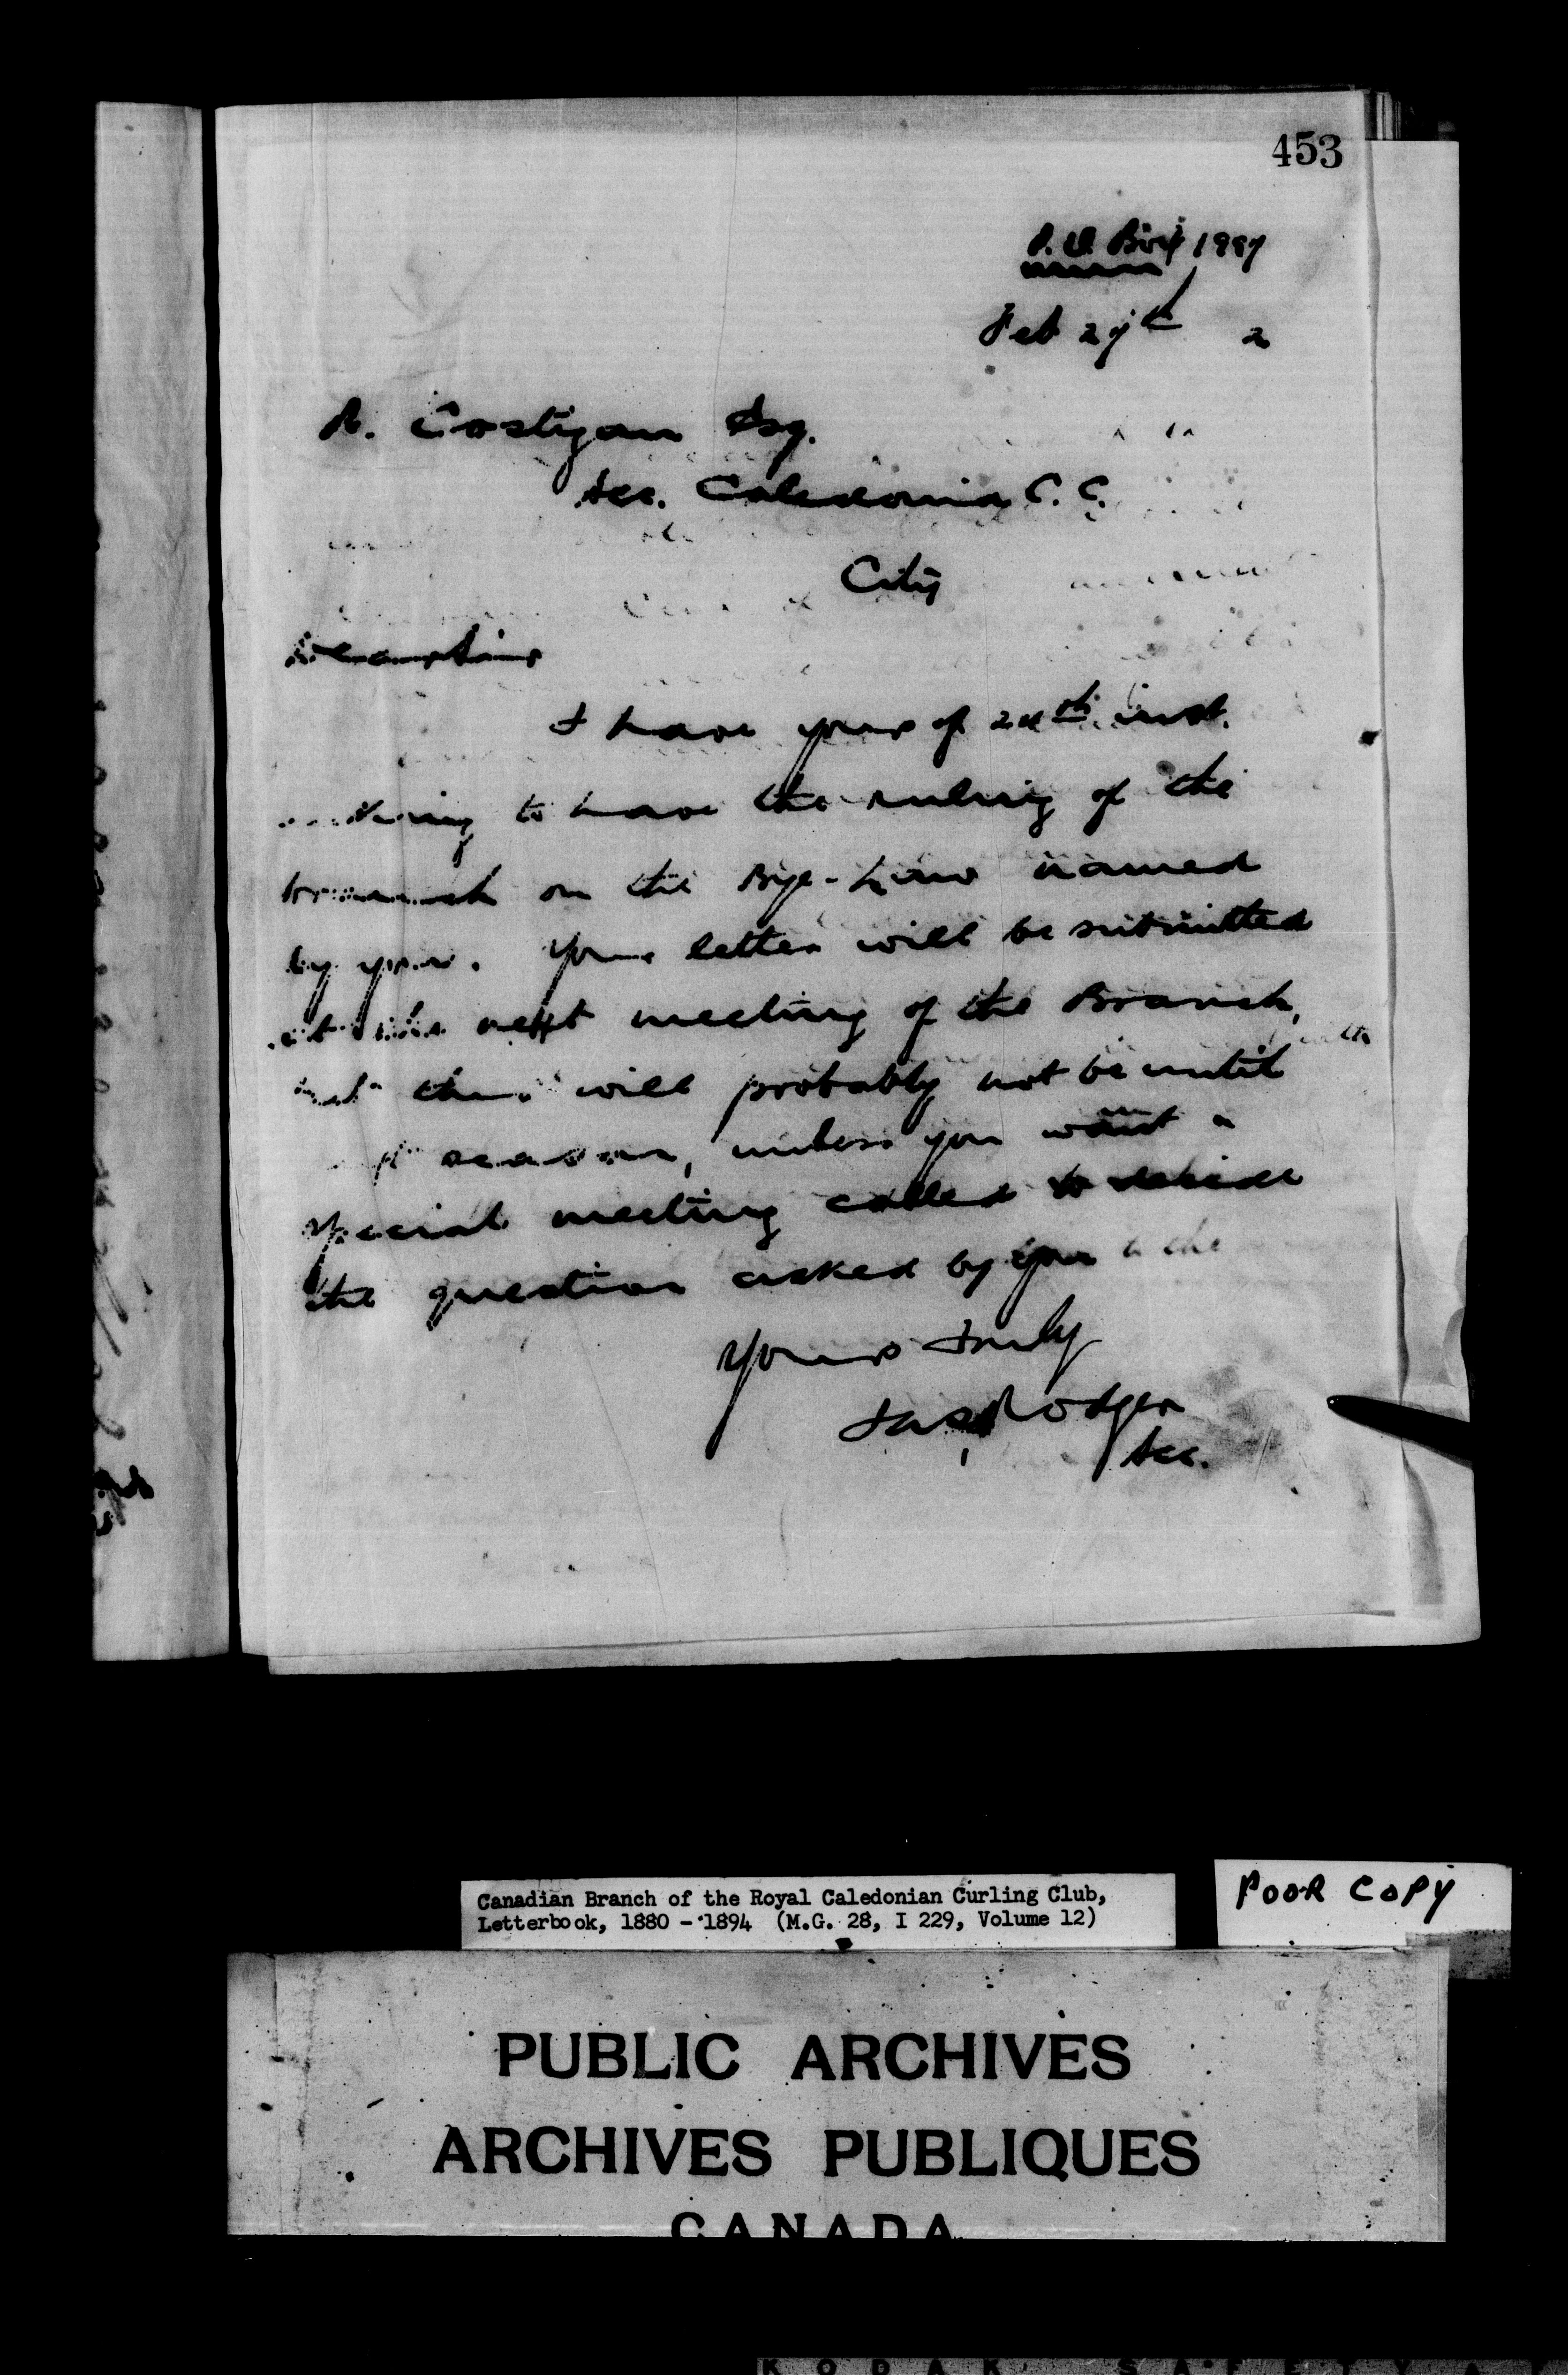 453
P. O. Box 1987
Feb 27th 2
A. Costigan Esq.
Sec. Caledonia C. C.
City
Dear Sir
I have yours of 24th inst.
to have the ruling of the
Branch on the Bye-Law named
by you. Your letter will be submitted
at the next meeting of the Branch,
but this will probably not be until
season, unless you want a
special meeting called to decide
the question asked by you
Yours truly
Jas Rodger
Sec.
Canadian Branch of the Royal Caledonian Curling Club,
Letterbook, 1880 - 1894 (M.G. 28, I 229, Volume 12)
POOR COPY
PUBLIC ARCHIVES
ARCHIVES PUBLIQUES
CANADA
KODAK SAFETY